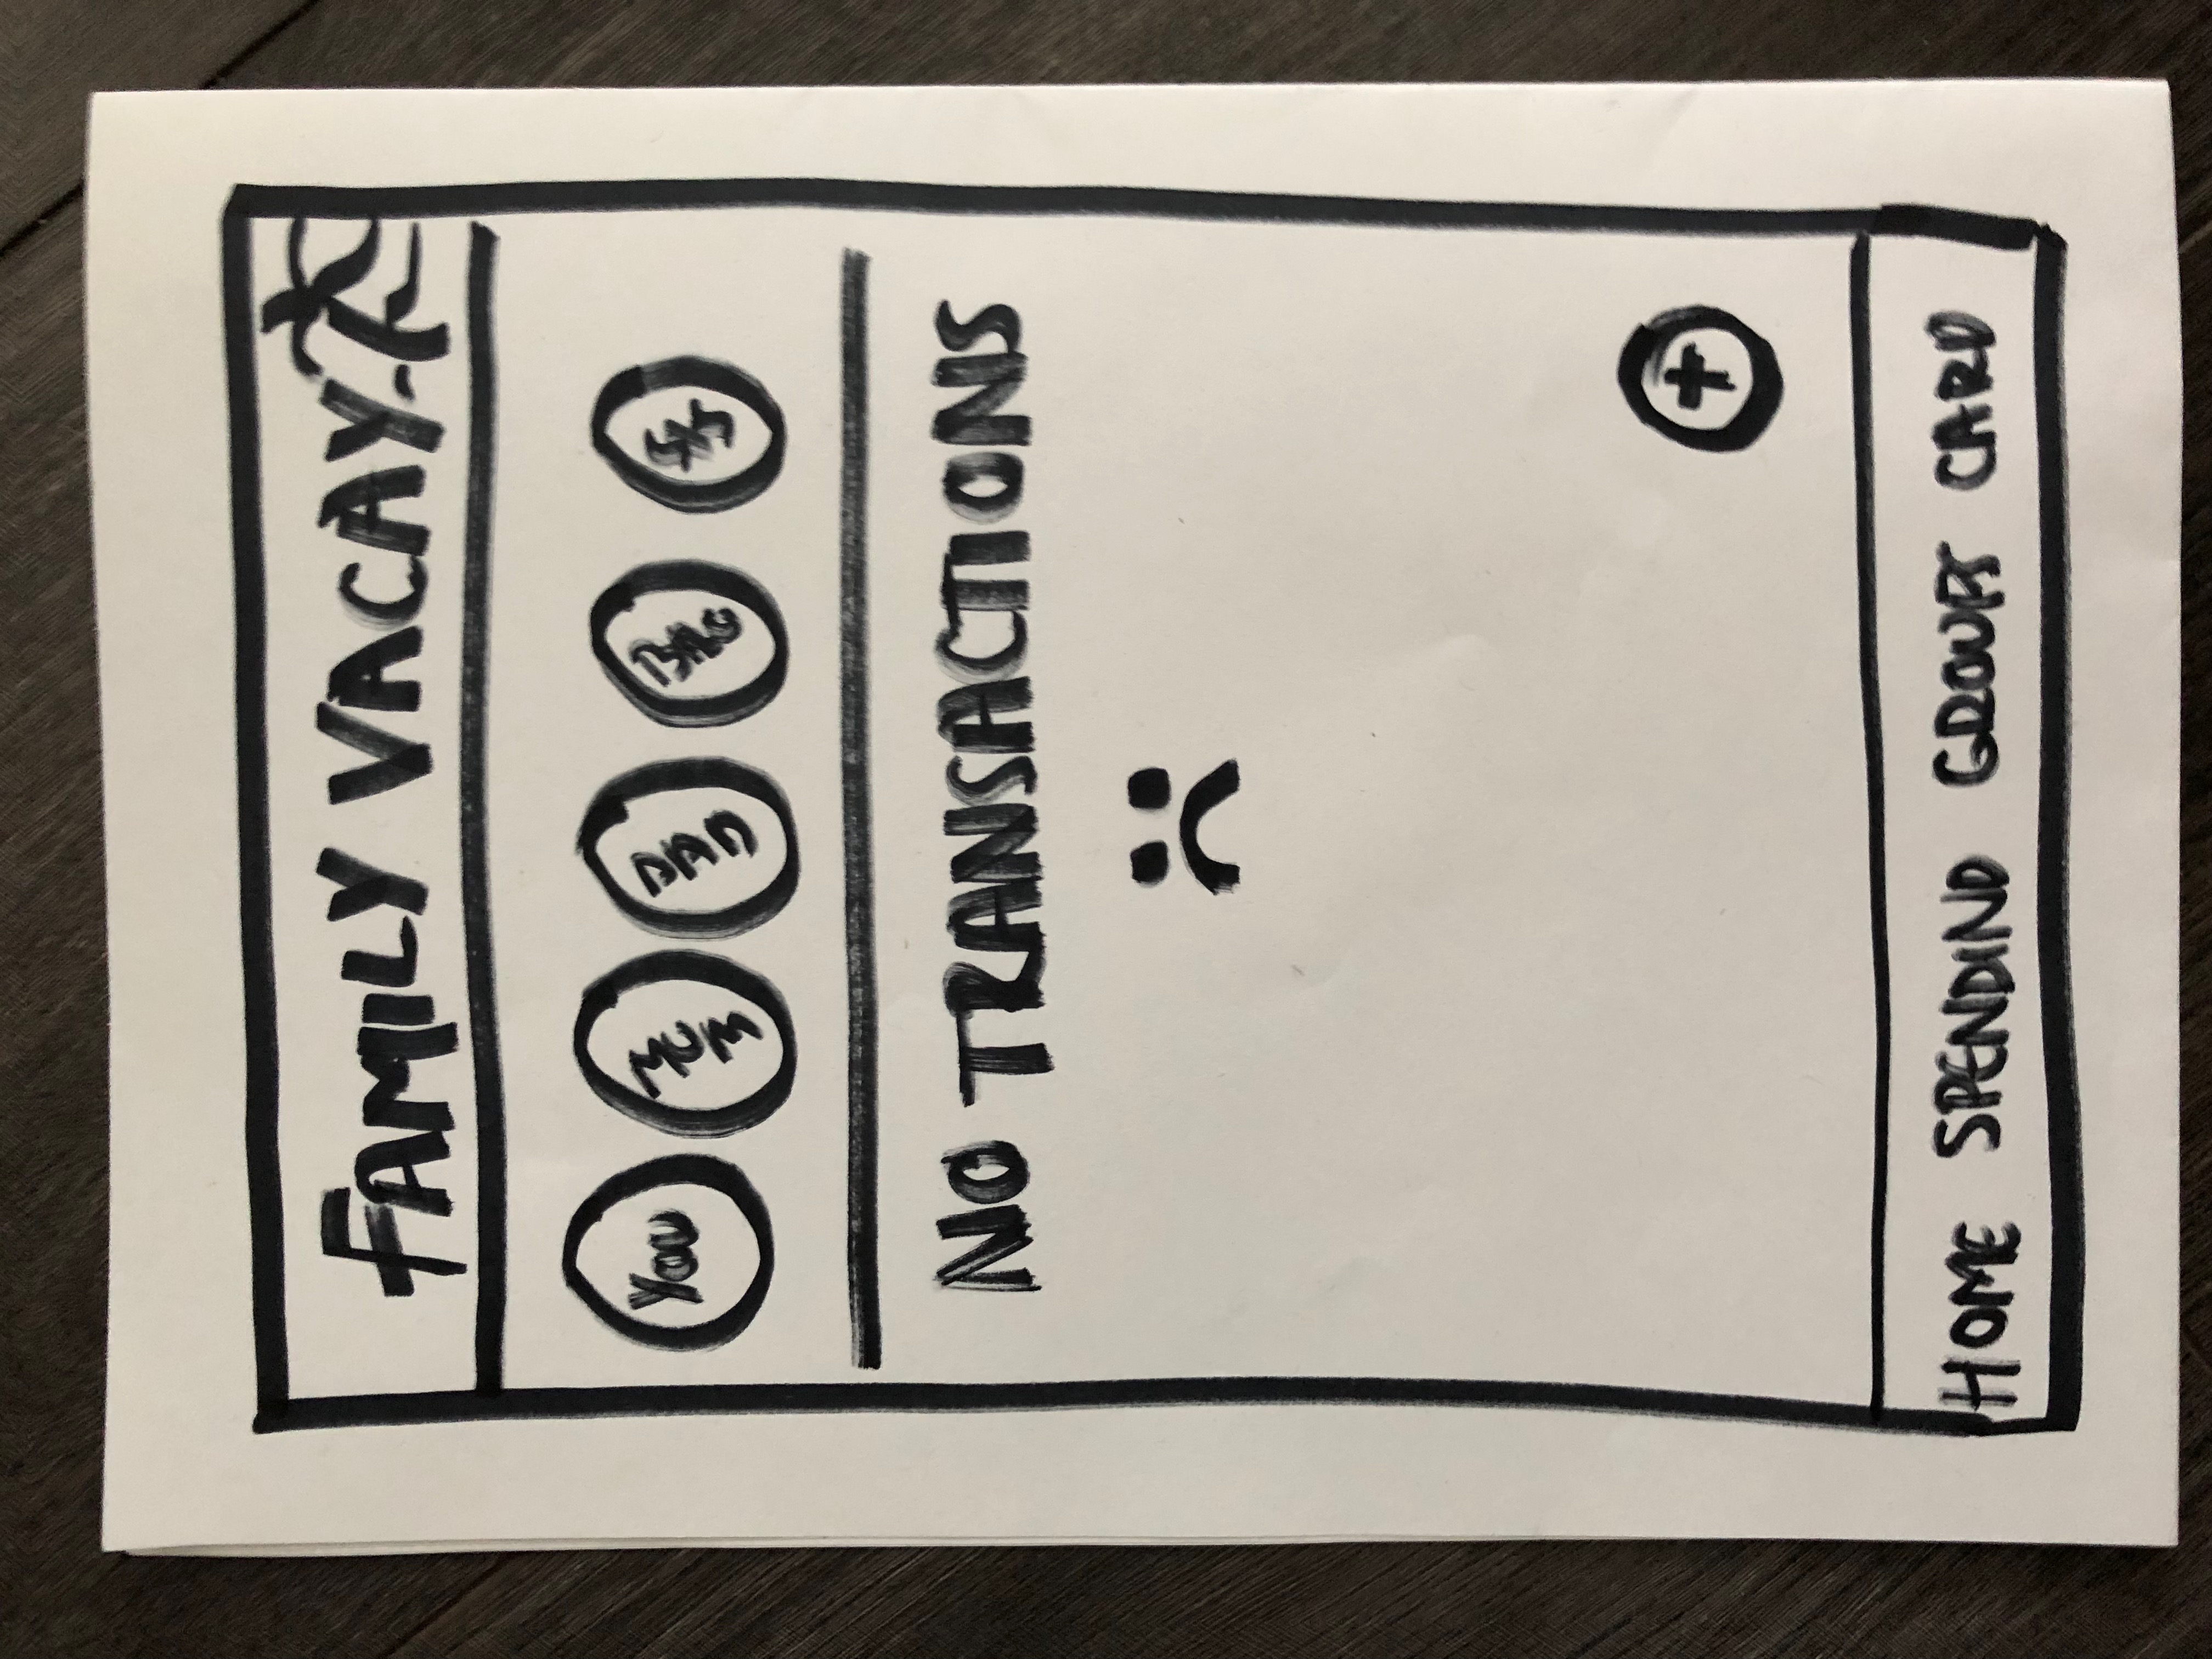 FAMILY VACAY
YOU MUM DAD BRO SIS
NO TRANSACTIONS
+
HOME SPENDIND GROUPS CARD